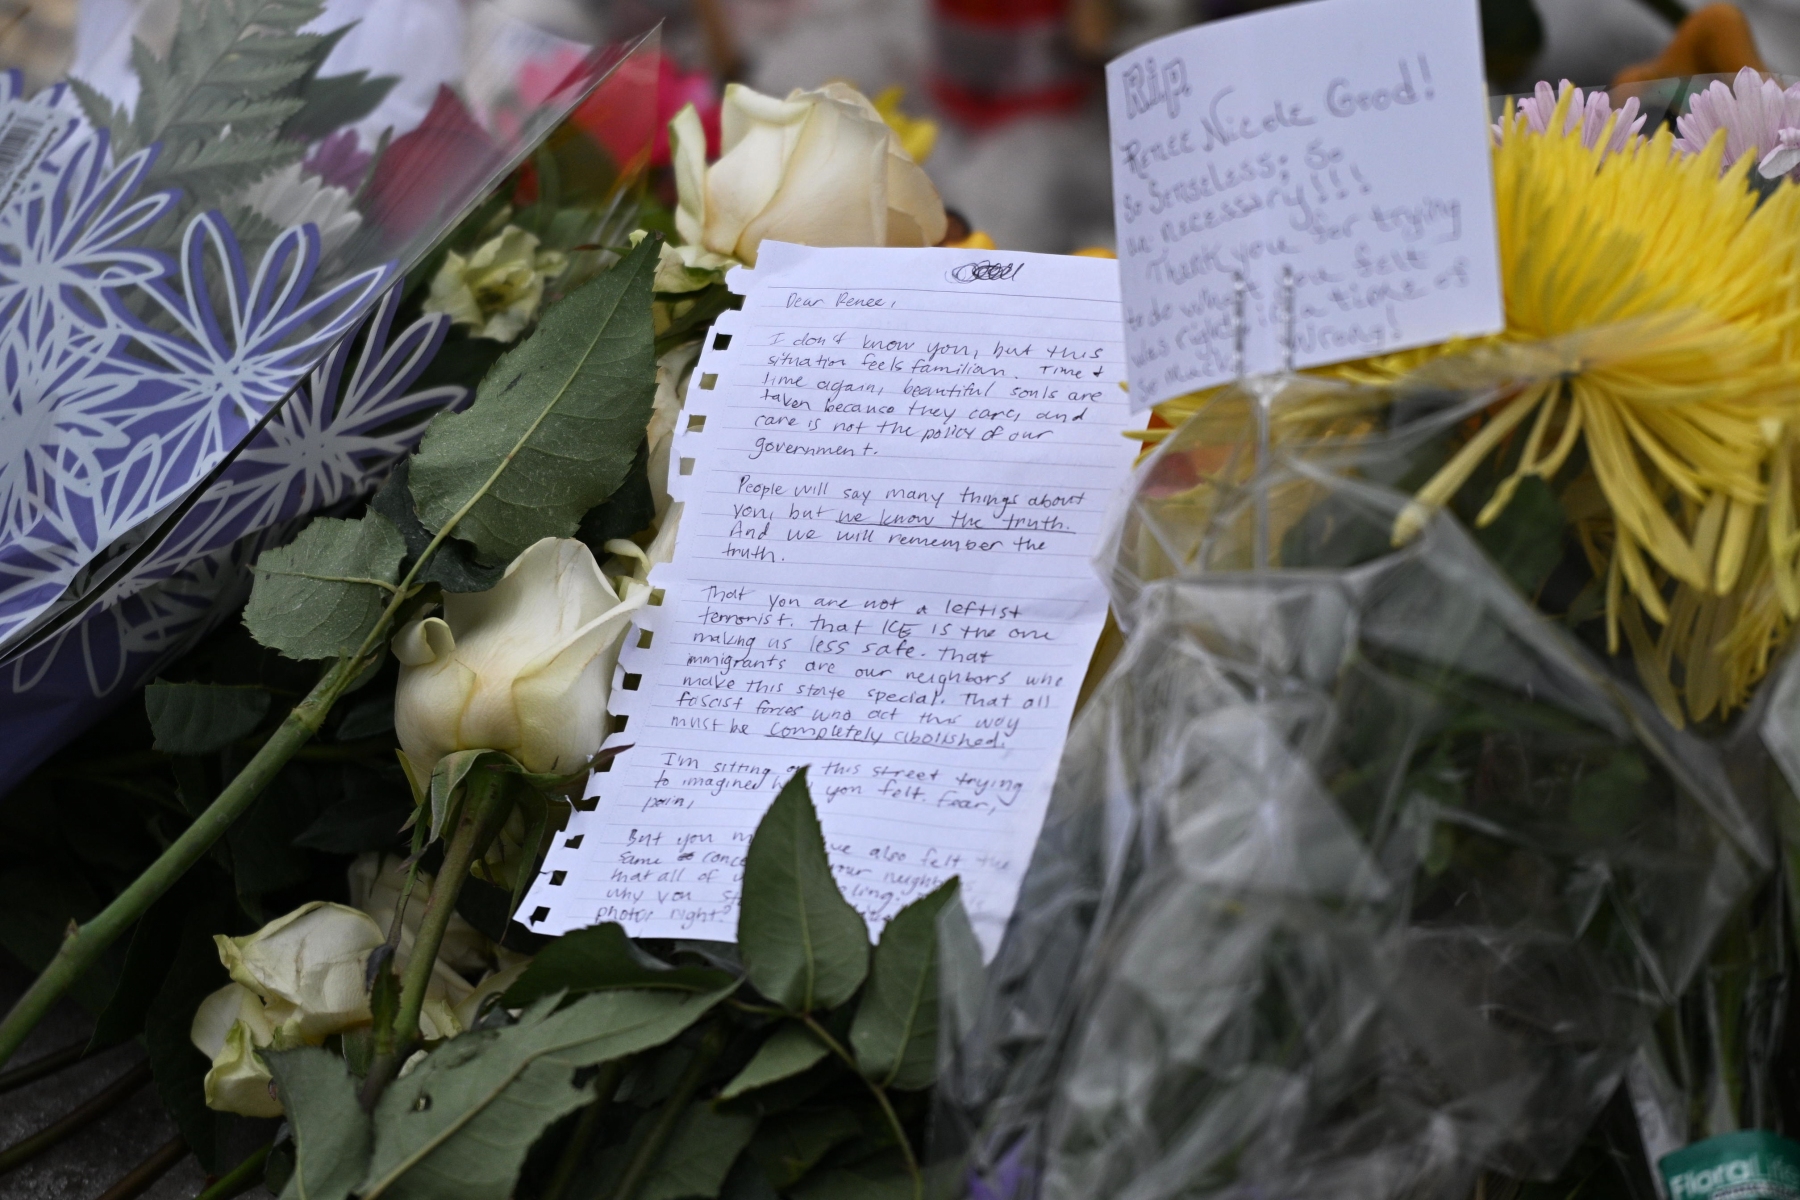 Dear Renee,
I don't know you, but this
situation feels familiar. Time &
time again, beautiful souls are
taken because they care, and
care is not the policy of our
government.
People will say many things about
you, but we know the truth.
And we will remember the
truth.
That you are not a leftist
terrorist. That ICE is the one
making us less safe. That
immigrants are our neighbors who
make this state special. That all
fascist forces who act this way
must be completely abolished.
I'm sitting on this street trying
to imagine you felt. Fear,
pain,
But you also felt the
same
that all of your neighbors
why you
photo, right?
Rip.
Renee Nicole Good!
So Senseless; So
un necessary!!!
Thank you for trying
to do what you felt
was right in a time of
so much Wrong!
FloraLife